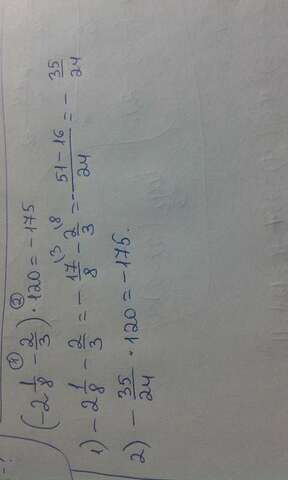 (-2 1/8 - 2/3) · 120 = -175
① ②
1) -2 1/8 - 2/3 = -17/8 (3 - 2/3 (8 = -51-16/24 = -35/24
2) -35/24 · 120 = -175.